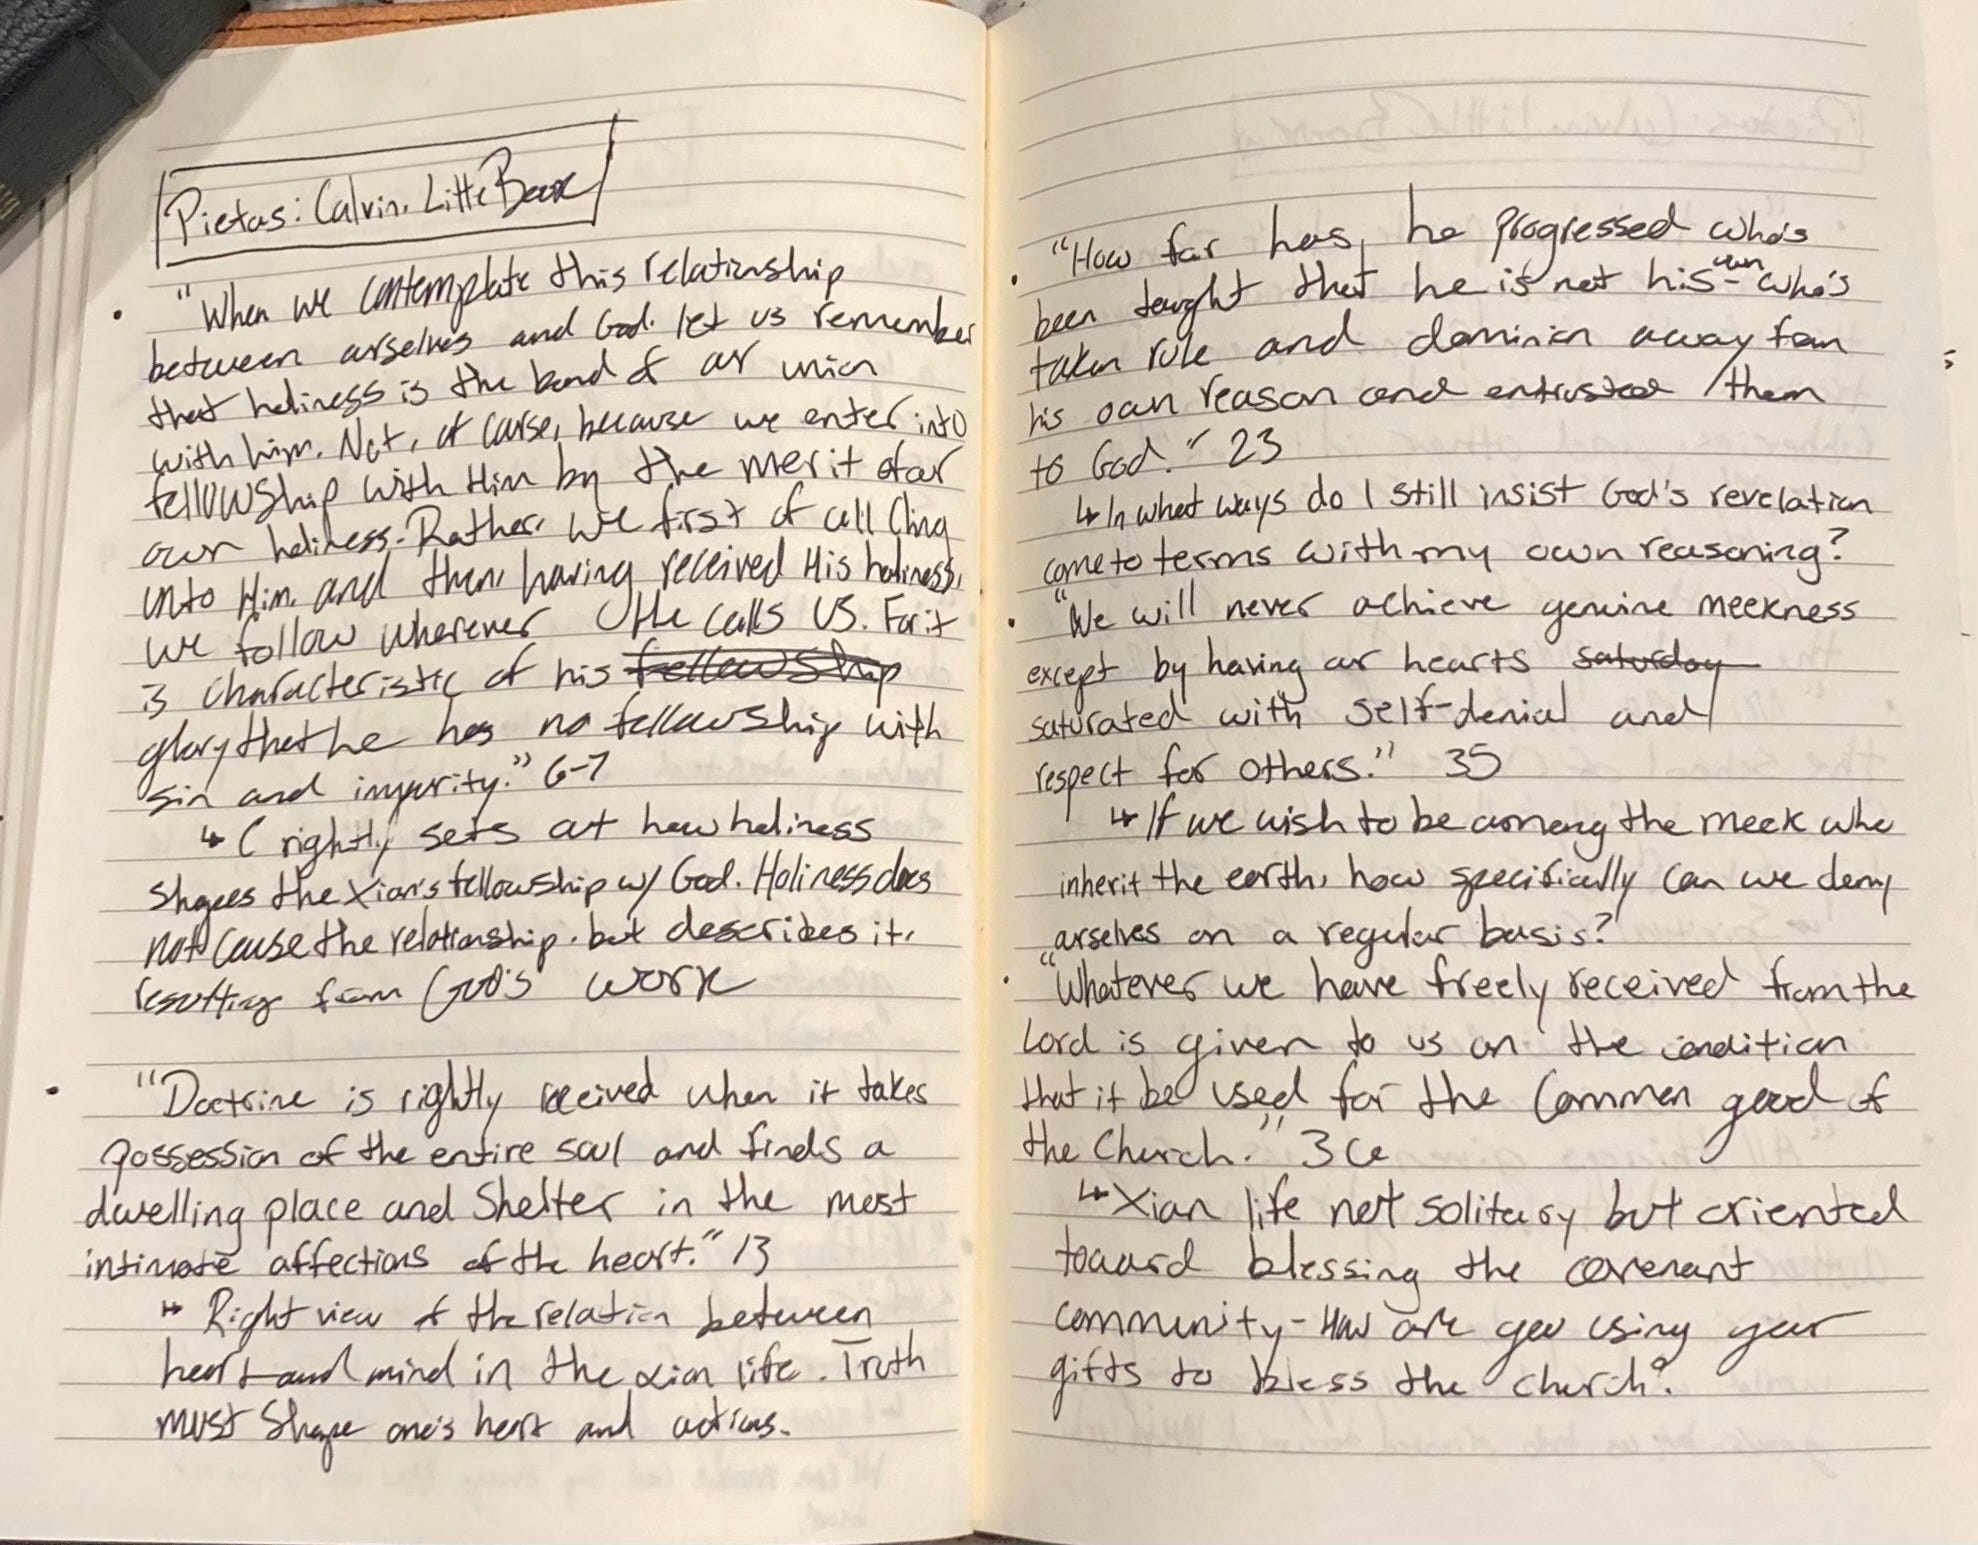 Pietas: Calvin, Little Book
• "When we contemplate this relationship
between ourselves and God, let us remember
that holiness is the bond of our union
with him. Not, of course, because we enter into
fellowship with Him by the merit of our
own holiness. Rather, we first of all cling
unto Him, and then, having received His holiness,
we follow wherever He calls us. For it
is characteristic of his fellowship
glory that he has no fellowship with
sin and impurity." 6-7
↳ C rightly sets out how holiness
shapes the Xian's fellowship w/ God. Holiness does
not cause the relationship, but describes it,
resulting from God's work
• "Doctrine is rightly received when it takes
possession of the entire soul and finds a
dwelling place and shelter in the most
intimate affections of the heart." 13
↳ Right view of the relation between
heart and mind in the xian life. Truth
must shape one's heart and actions.
• "How far has he progressed who's
been taught that he is not his own - who's
taken rule and dominion away from
his own reason and entrusted them
to God." 23
↳ In what ways do I still insist God's revelation
come to terms with my own reasoning?
• "We will never achieve genuine meekness
except by having our hearts saturday
saturated with self-denial and
respect for others." 35
↳ If we wish to be among the meek who
inherit the earth, how specifically can we deny
ourselves on a regular basis?
• "Whatever we have freely received from the
Lord is given to us on the condition
that it be used for the common good of
the Church." 36
↳ Xian life not solitary but oriented
toward blessing the covenant
community - How are you using your
gifts to bless the church?